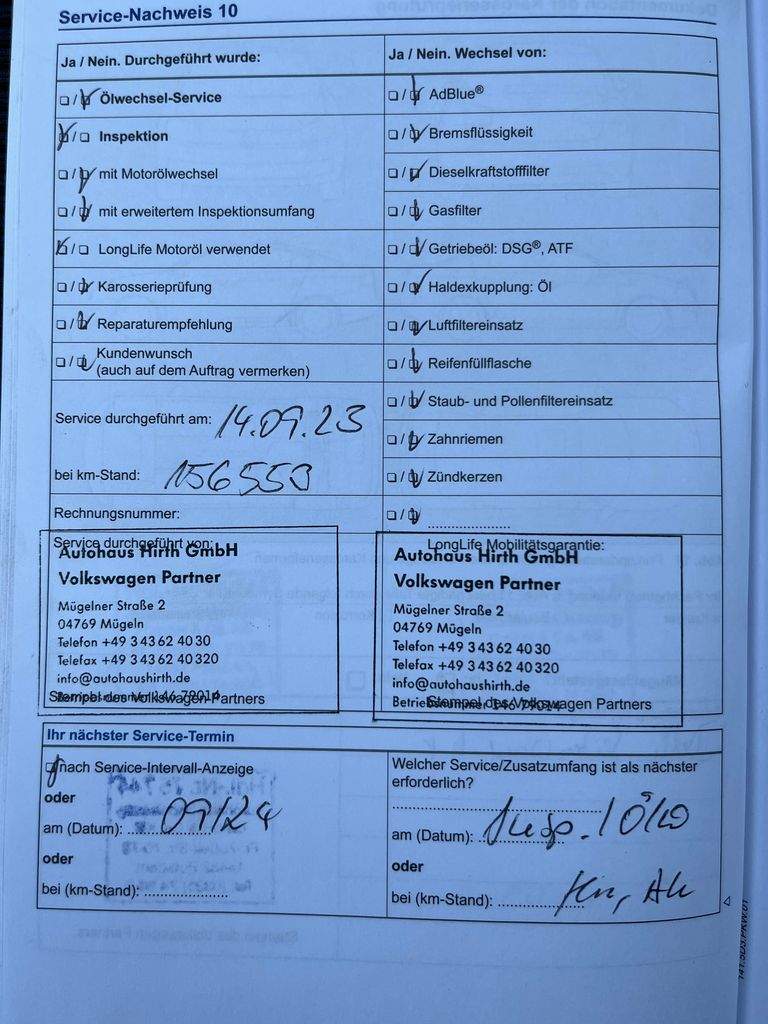 Service-Nachweis 10
Ja / Nein. Durchgeführt wurde:
Ölwechsel-Service
Inspektion
mit Motorölwechsel
mit erweitertem Inspektionsumfang
LongLife Motoröl verwendet
Karosserieprüfung
Reparaturempfehlung
Kundenwunsch
(auch auf dem Auftrag vermerken)
Service durchgeführt am: 14.09.23
bei km-Stand: 156553
Rechnungsnummer:
Ja / Nein. Wechsel von:
AdBlue®
Bremsflüssigkeit
Dieselkraftstofffilter
Gasfilter
Getriebeöl: DSG®, ATF
Haldexkupplung: Öl
Luftfiltereinsatz
Reifenfüllflasche
Staub- und Pollenfiltereinsatz
Zahnriemen
Zündkerzen
Service durchgeführt von:
Autohaus Hirth GmbH
Volkswagen Partner
Mügelner Straße 2
04769 Mügeln
Telefon +49 3 43 62 40 30
Telefax +49 3 43 62 40 320
info@autohaushirth.de
Stempel des Volkswagen Partners
LongLife Mobilitätsgarantie:
Autohaus Hirth GmbH
Volkswagen Partner
Mügelner Straße 2
04769 Mügeln
Telefon +49 3 43 62 40 30
Telefax +49 3 43 62 40 320
info@autohaushirth.de
Betriebsnummer
Stempel des Volkswagen Partners
Ihr nächster Service-Termin
nach Service-Intervall-Anzeige
oder
am (Datum): 09/24
oder
bei (km-Stand):
Welcher Service/Zusatzumfang ist als nächster
erforderlich?
am (Datum): Insp. / ÖW
oder
bei (km-Stand):